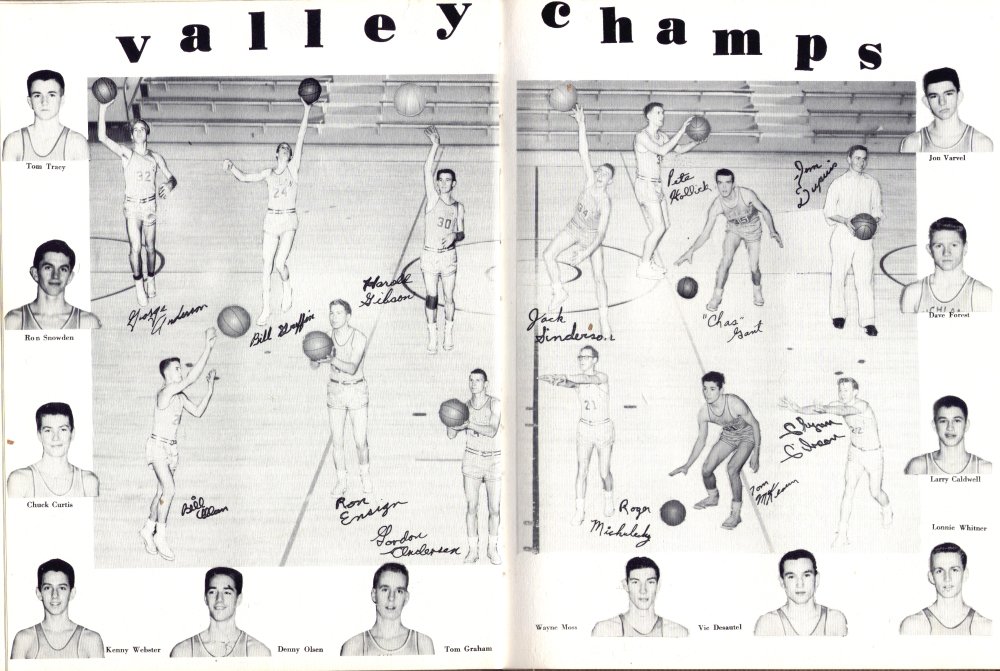 valley champs
Tom Tracy
Jon Varvel
Ron Snowden
Dave Forest
Chuck Curtis
Larry Caldwell
Lonnie Whitner
Kenny Webster
Denny Olsen
Tom Graham
Wayne Moss
Vic Desautel
32
24
30
34
George
Anderson
Bill Griffin
Harold
Gibson
Pete
Hollick
Tom
Dupuis
Jack
"Chas"
Gant
21
22
Bill
Ron
Ensign
Gordon
Andersen
Roger
Tom
McKeown